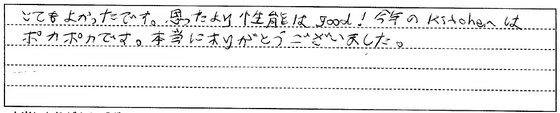 とてもよかったです。思ったより性能は good! 今年の kitchen は
ポカポカです。本当にありがとうございました。